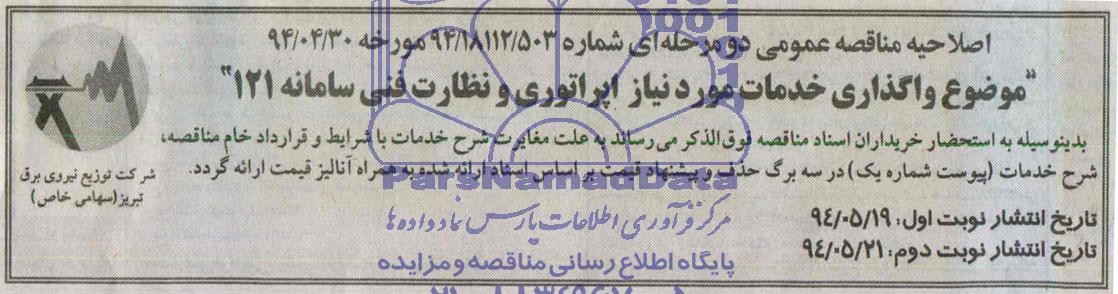 اصلاحیه مناقصه عمومی دو مرحله‌ای شماره ۹۴/۱۸۱۱۲/۵۰۳ مورخه ۹۴/۰۴/۳۰
"موضوع واگذاری خدمات مورد نیاز اپراتوری و نظارت فنی سامانه ۱۲۱"
بدینوسیله به استحضار خریداران اسناد مناقصه فوق‌الذکر می‌رساند به علت مغایرت شرح خدمات با شرایط و قرارداد خام مناقصه،
شرح خدمات (پیوست شماره یک) در سه برگ حذف و پیشنهاد قیمت بر اساس اسناد ارائه شده به همراه آنالیز قیمت ارائه گردد.
شرکت توزیع نیروی برق
تبریز (سهامی خاص)
تاریخ انتشار نوبت اول: ۹۴/۰۵/۱۹
تاریخ انتشار نوبت دوم: ۹۴/۰۵/۲۱
ParsNamadData
مرکز فرآوری اطلاعات پارس نماد داده ها
پایگاه اطلاع رسانی مناقصه و مزایده